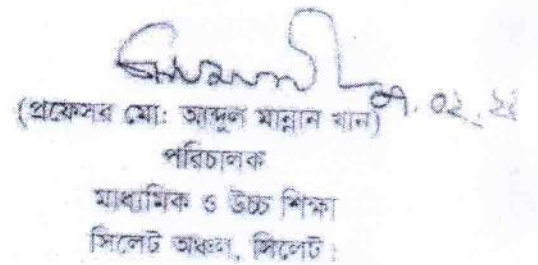 ০৭.০২.২৪
(প্রফেসর মো: আব্দুল মান্নান খান)
পরিচালক
মাধ্যমিক ও উচ্চ শিক্ষা
সিলেট অঞ্চল, সিলেট।